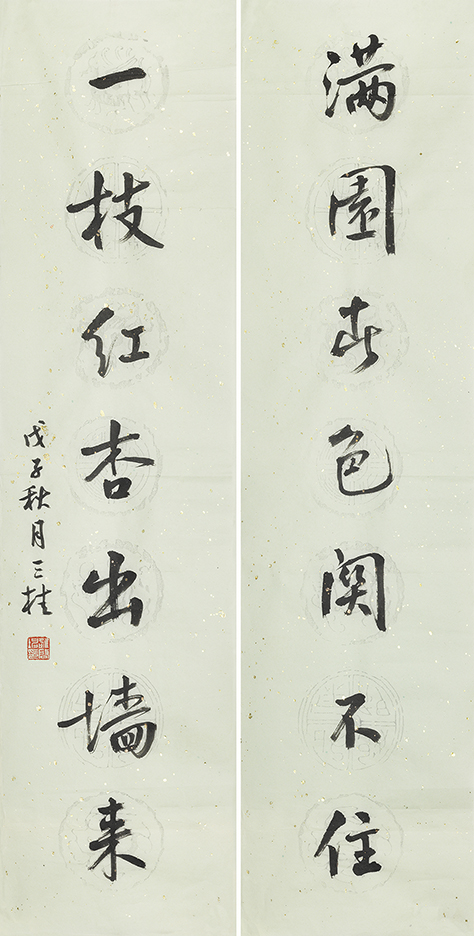 满園春色関不住
一枝红杏出墙来
戊子秋月三桂